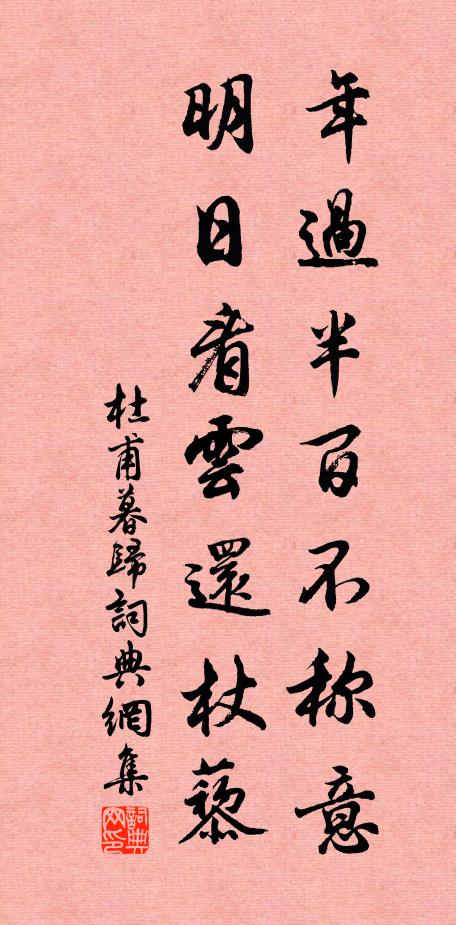 年過半百不称意
明日看雲還杖藜
杜甫暮歸詞典網集
詞典网印